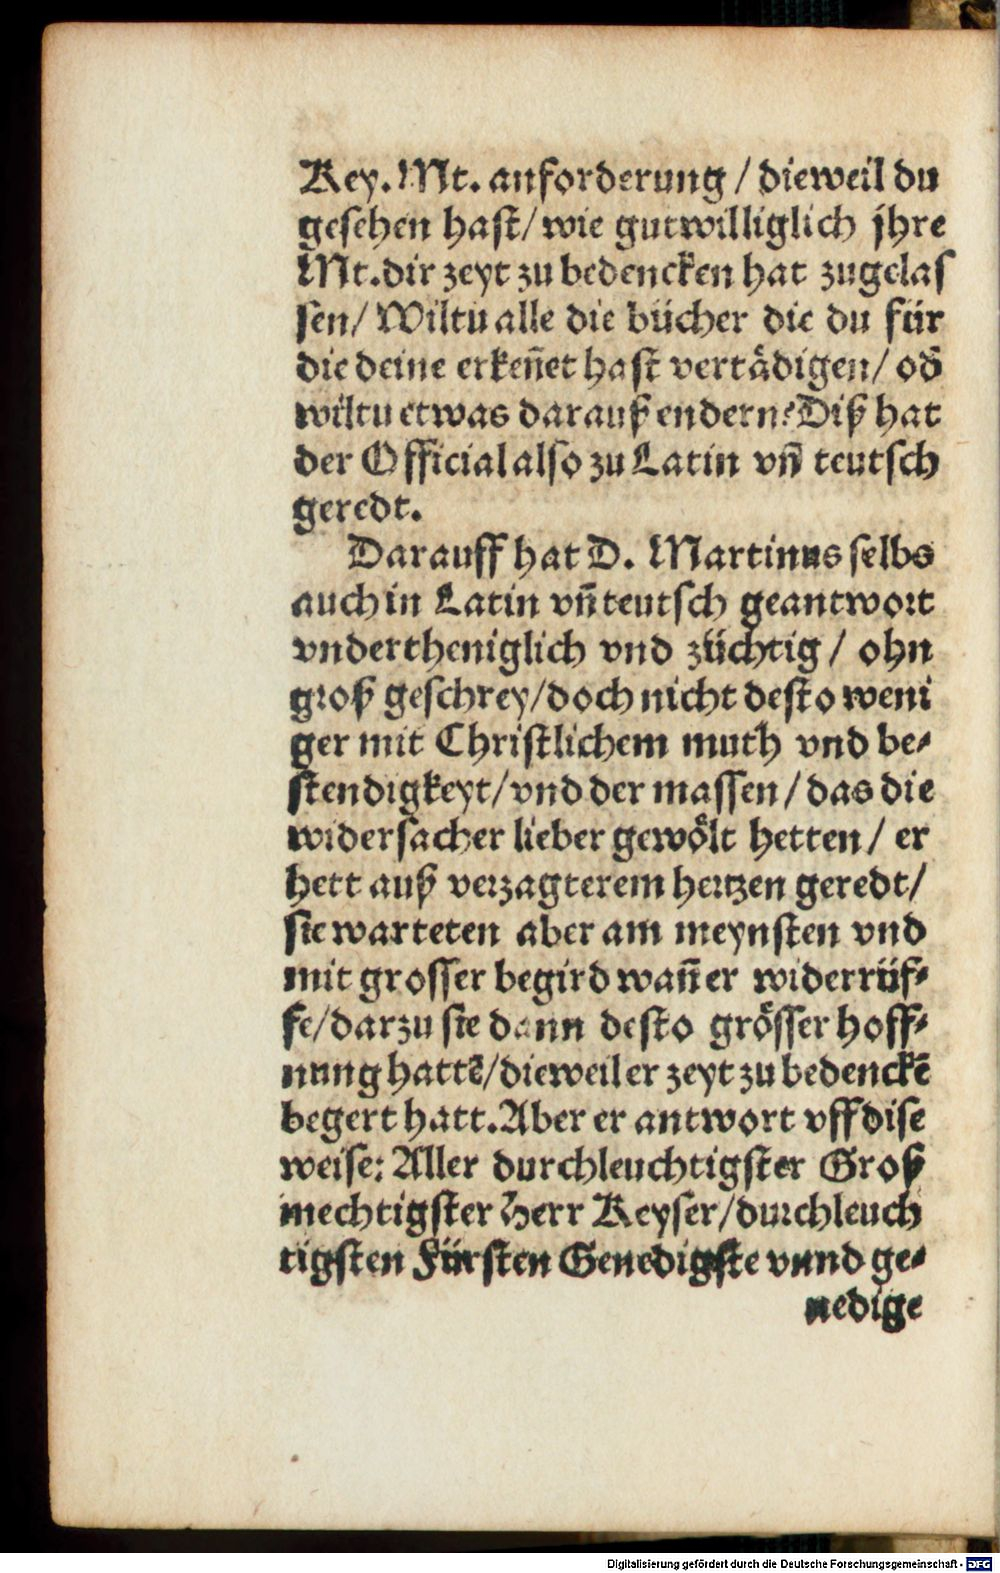 Key. Mt. anforderung / dieweil du
gesehen hast/ wie gutwilliglich jhre
Mt. dir zeyt zu bedencken hat zugelas
sen/ Wiltu alle die bücher die du für
die deine erkeñet hast vertädigen/ od̃
wiltu etwas darauß endern? Diß hat
der Official also zu Latin vñ teutsch
geredt.
Darauff hat D. Martinus selbs
auch in Latin vñ teutsch geantwort
vndertheniglich vnd züchtig / ohn
groß geschrey/ doch nicht desto weni
ger mit Christlichem muth vnd be-
stendigkeyt/ vnd der massen/ das die
widersacher lieber gewölt hetten/ er
hett auß verzagterem hertzen geredt/
sie warteten aber am meynsten vnd
mit grosser begird wañ er widerrüf-
fe/ darzu sie dann desto grösser hoff-
nung hattẽ/ dieweil er zeyt zu bedenckẽ
begert hatt. Aber er antwort vff dise
weise: Aller durchleuchtigster Groß
mechtigster Herr Keyser/ durchleuch
tigsten Fürsten Genedigste vnnd ge-
nedige
Digitalisierung gefördert durch die Deutsche Forschungsgemeinschaft - DFG